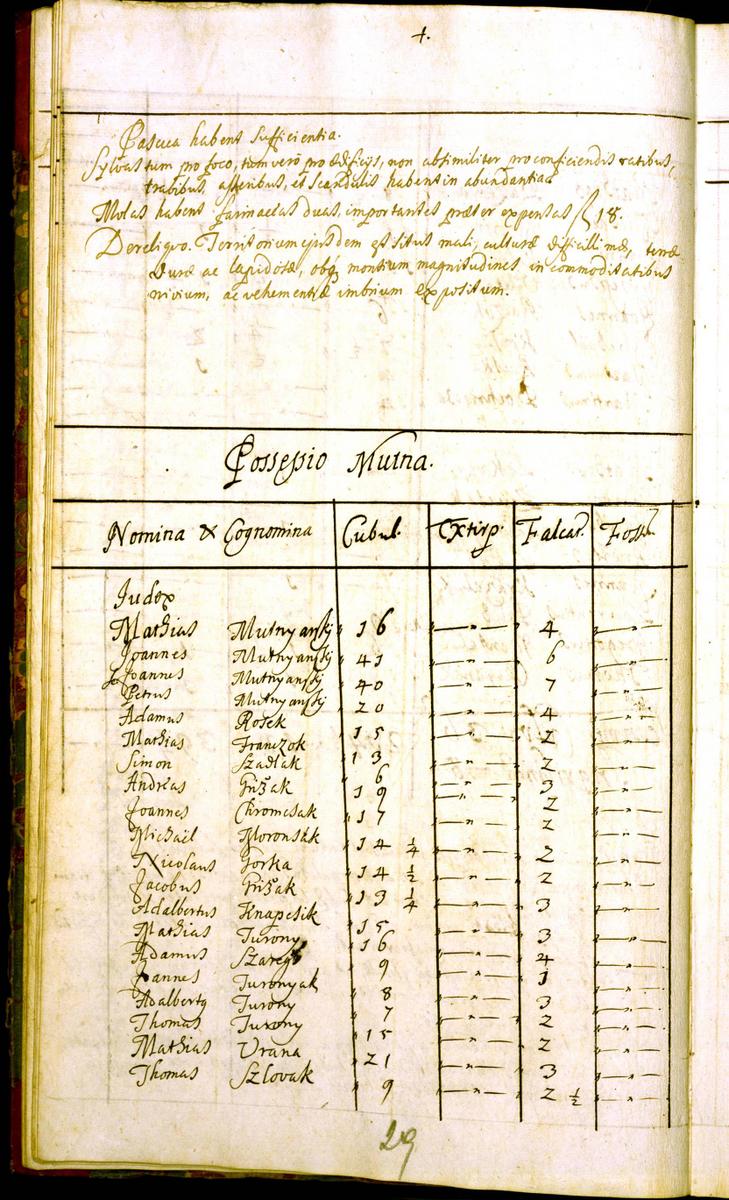 4.
Pascua habent sufficientia.
Sylvas tum pro foco, tum vero pro ædificijs, non absimiliter pro conficiendis ratibus,
trabibus, asseribus, et scandulis habent in abundantia.
Molas habent farinaceas duas, importantes præter expensas fl 18.
De reliquo. Territorium ejusdem est situs mali, culturæ difficillimæ, terræ
duræ ac lapidosæ, obq montium magnitudines incommoditatibus
nivium, ac vehementiæ imbrium expositum.
Possessio Mutna.
Nomina & Cognomina Cubul. Extirp. Falcat. Foss
Judex
Mathias Mutnyanskj 16 4
Joannes Mutnyanskj 41 6
Joannes Mutnyanskj 40 7
Petrus Mutnyanskj 20 4
Adamus Rosek 15 2
Mathias Franczok 13 2
Simon Szadlak 6 3
Andreas Grižak 19 2
Joannes Chromcsak 17 2
Michael Moronsak 14 1/4 2
Nicolaus Gorka 14 1/2 2
Jacobus Grižak 13 1/4 3
Adalbertus Knapcsik 15 3
Mathias Turony 16 4
Adamus 9 1
Joannes Turonyak 8 3
Adalbertq Turony 7 2
Thomas Turony 15 2
Mathias Vrana 21 3
Thomas Szlovak 9 2 1/2
29